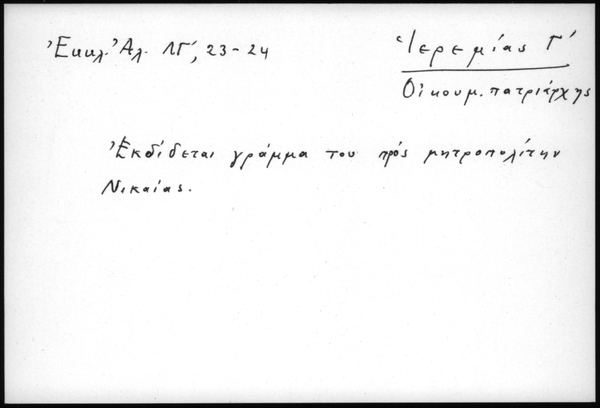 Ἐκκλ. Ἀλ. ΛΓ΄, 23-24
Ἱερεμίας Γ΄
Οἰκουμ. πατριάρχης
Ἐκδίδεται γράμμα του πρός μητροπολίτην
Νικαίας.